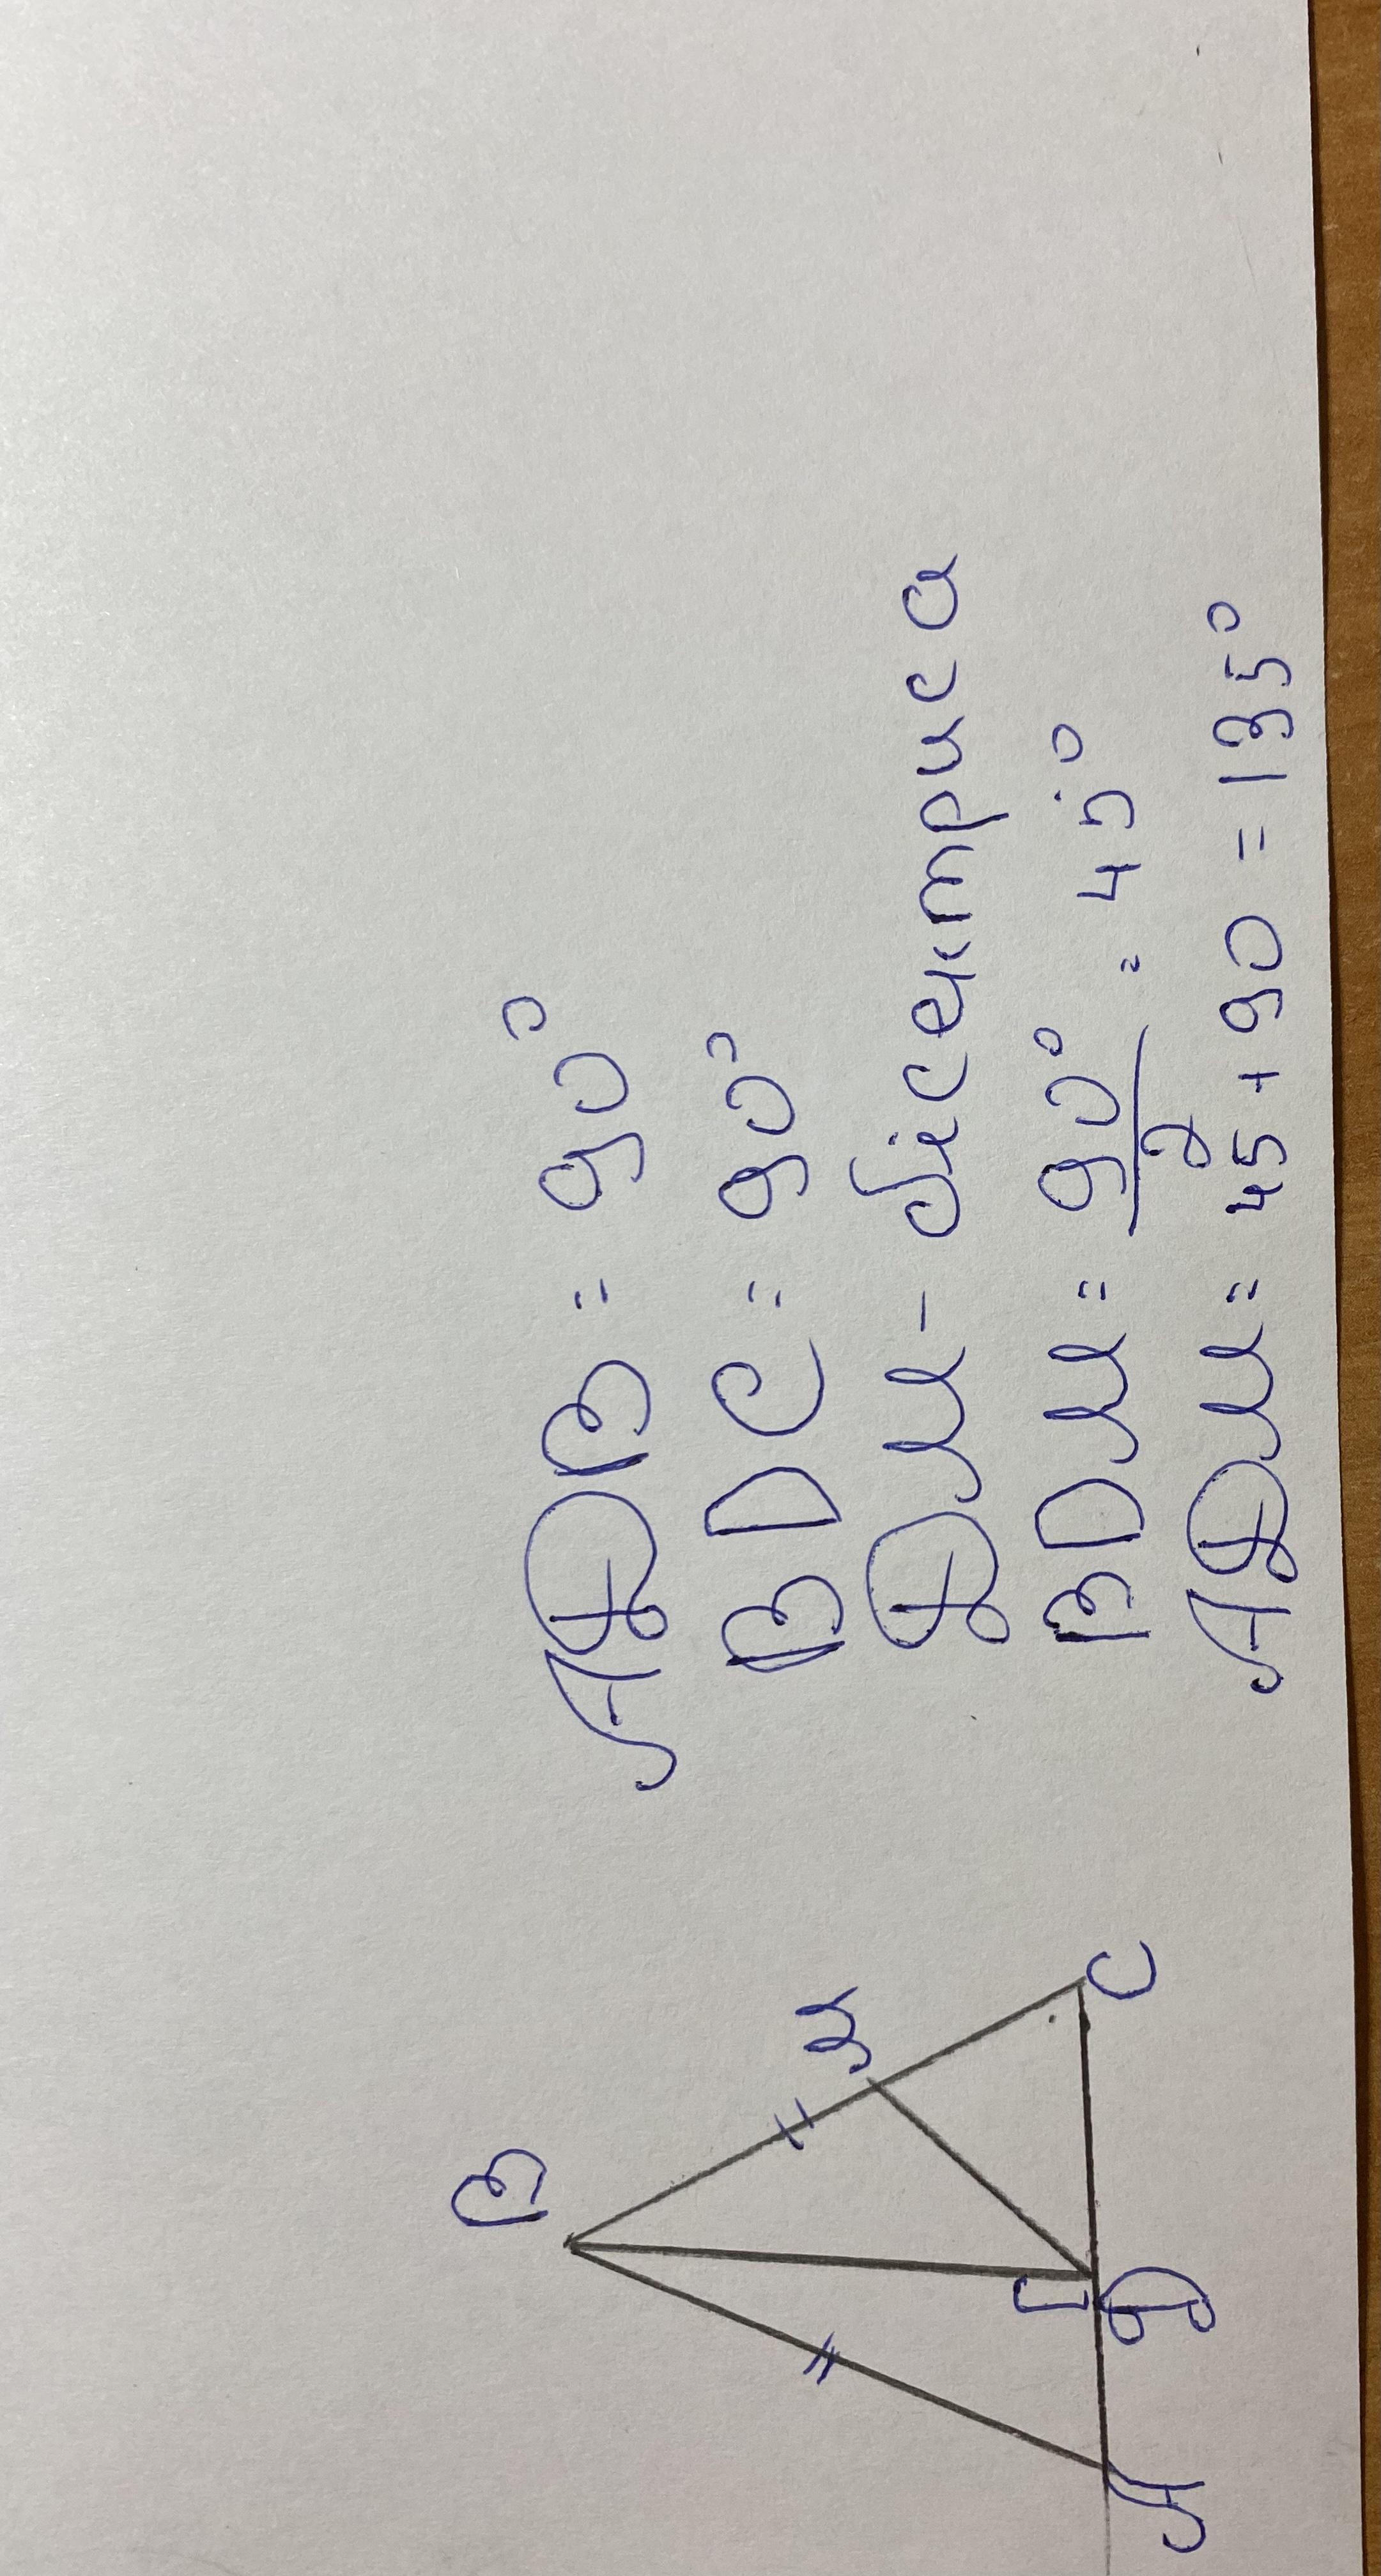 B
M
A
D
C
ADB = 90°
BDC = 90°
DM - бісектриса
BDM = 90°/2 = 45°
ADM = 45 + 90 = 135°